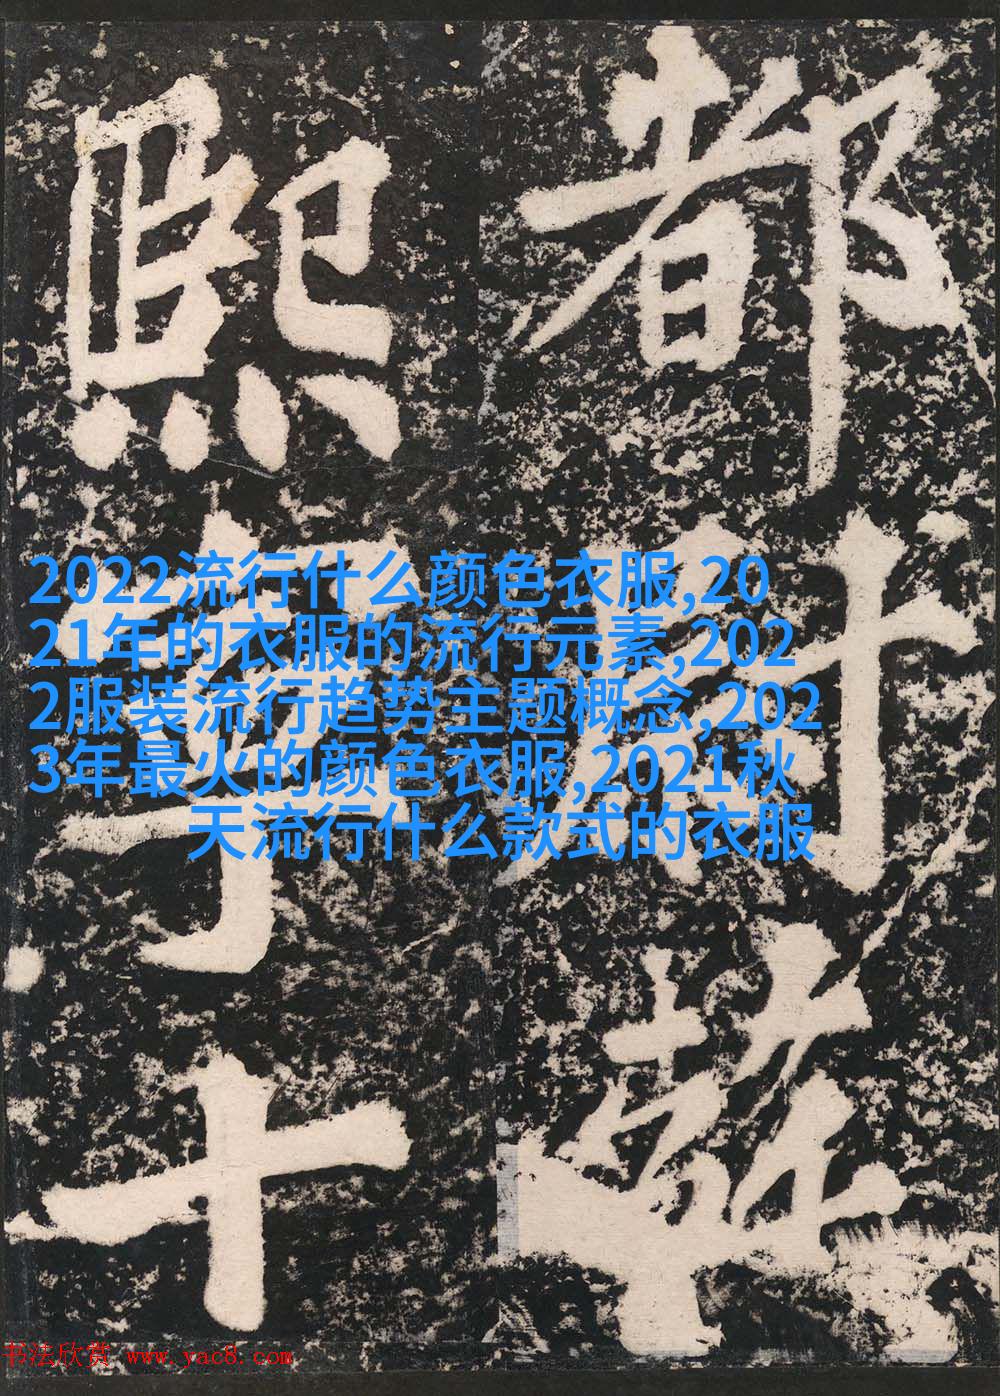 都尉蘇
熙寧十
2022流行什么颜色衣服,20
21年的衣服的流行元素,202
2服装流行趋势主题概念,202
3年最火的颜色衣服,2021秋
天流行什么款式的衣服
书法欣赏 www.yac8.com